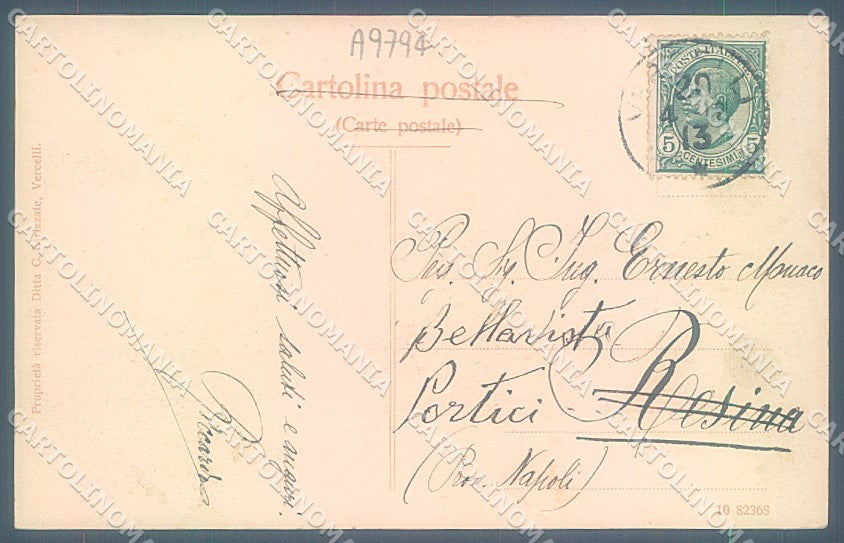 A9794
Cartolina postale
(Carte postale)
POSTE ITALIANE
5 CENTESIMI 5
20
4
13
Affettuosi saluti e auguri.
Ernesto Monaco
Bellavista
Portici Resina
(Prov. Napoli)
10 82368
Proprietà riservata Ditta C. Vercelli.
CARTOLINOMANIA